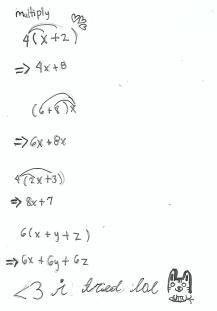 multiply
4(x+2)
=> 4x+8
(6+8)x
=> 6x+8x
4(2x+3)
=> 8x+7
6(x+y+z)
=> 6x+6y+6z
<3 i tried lol